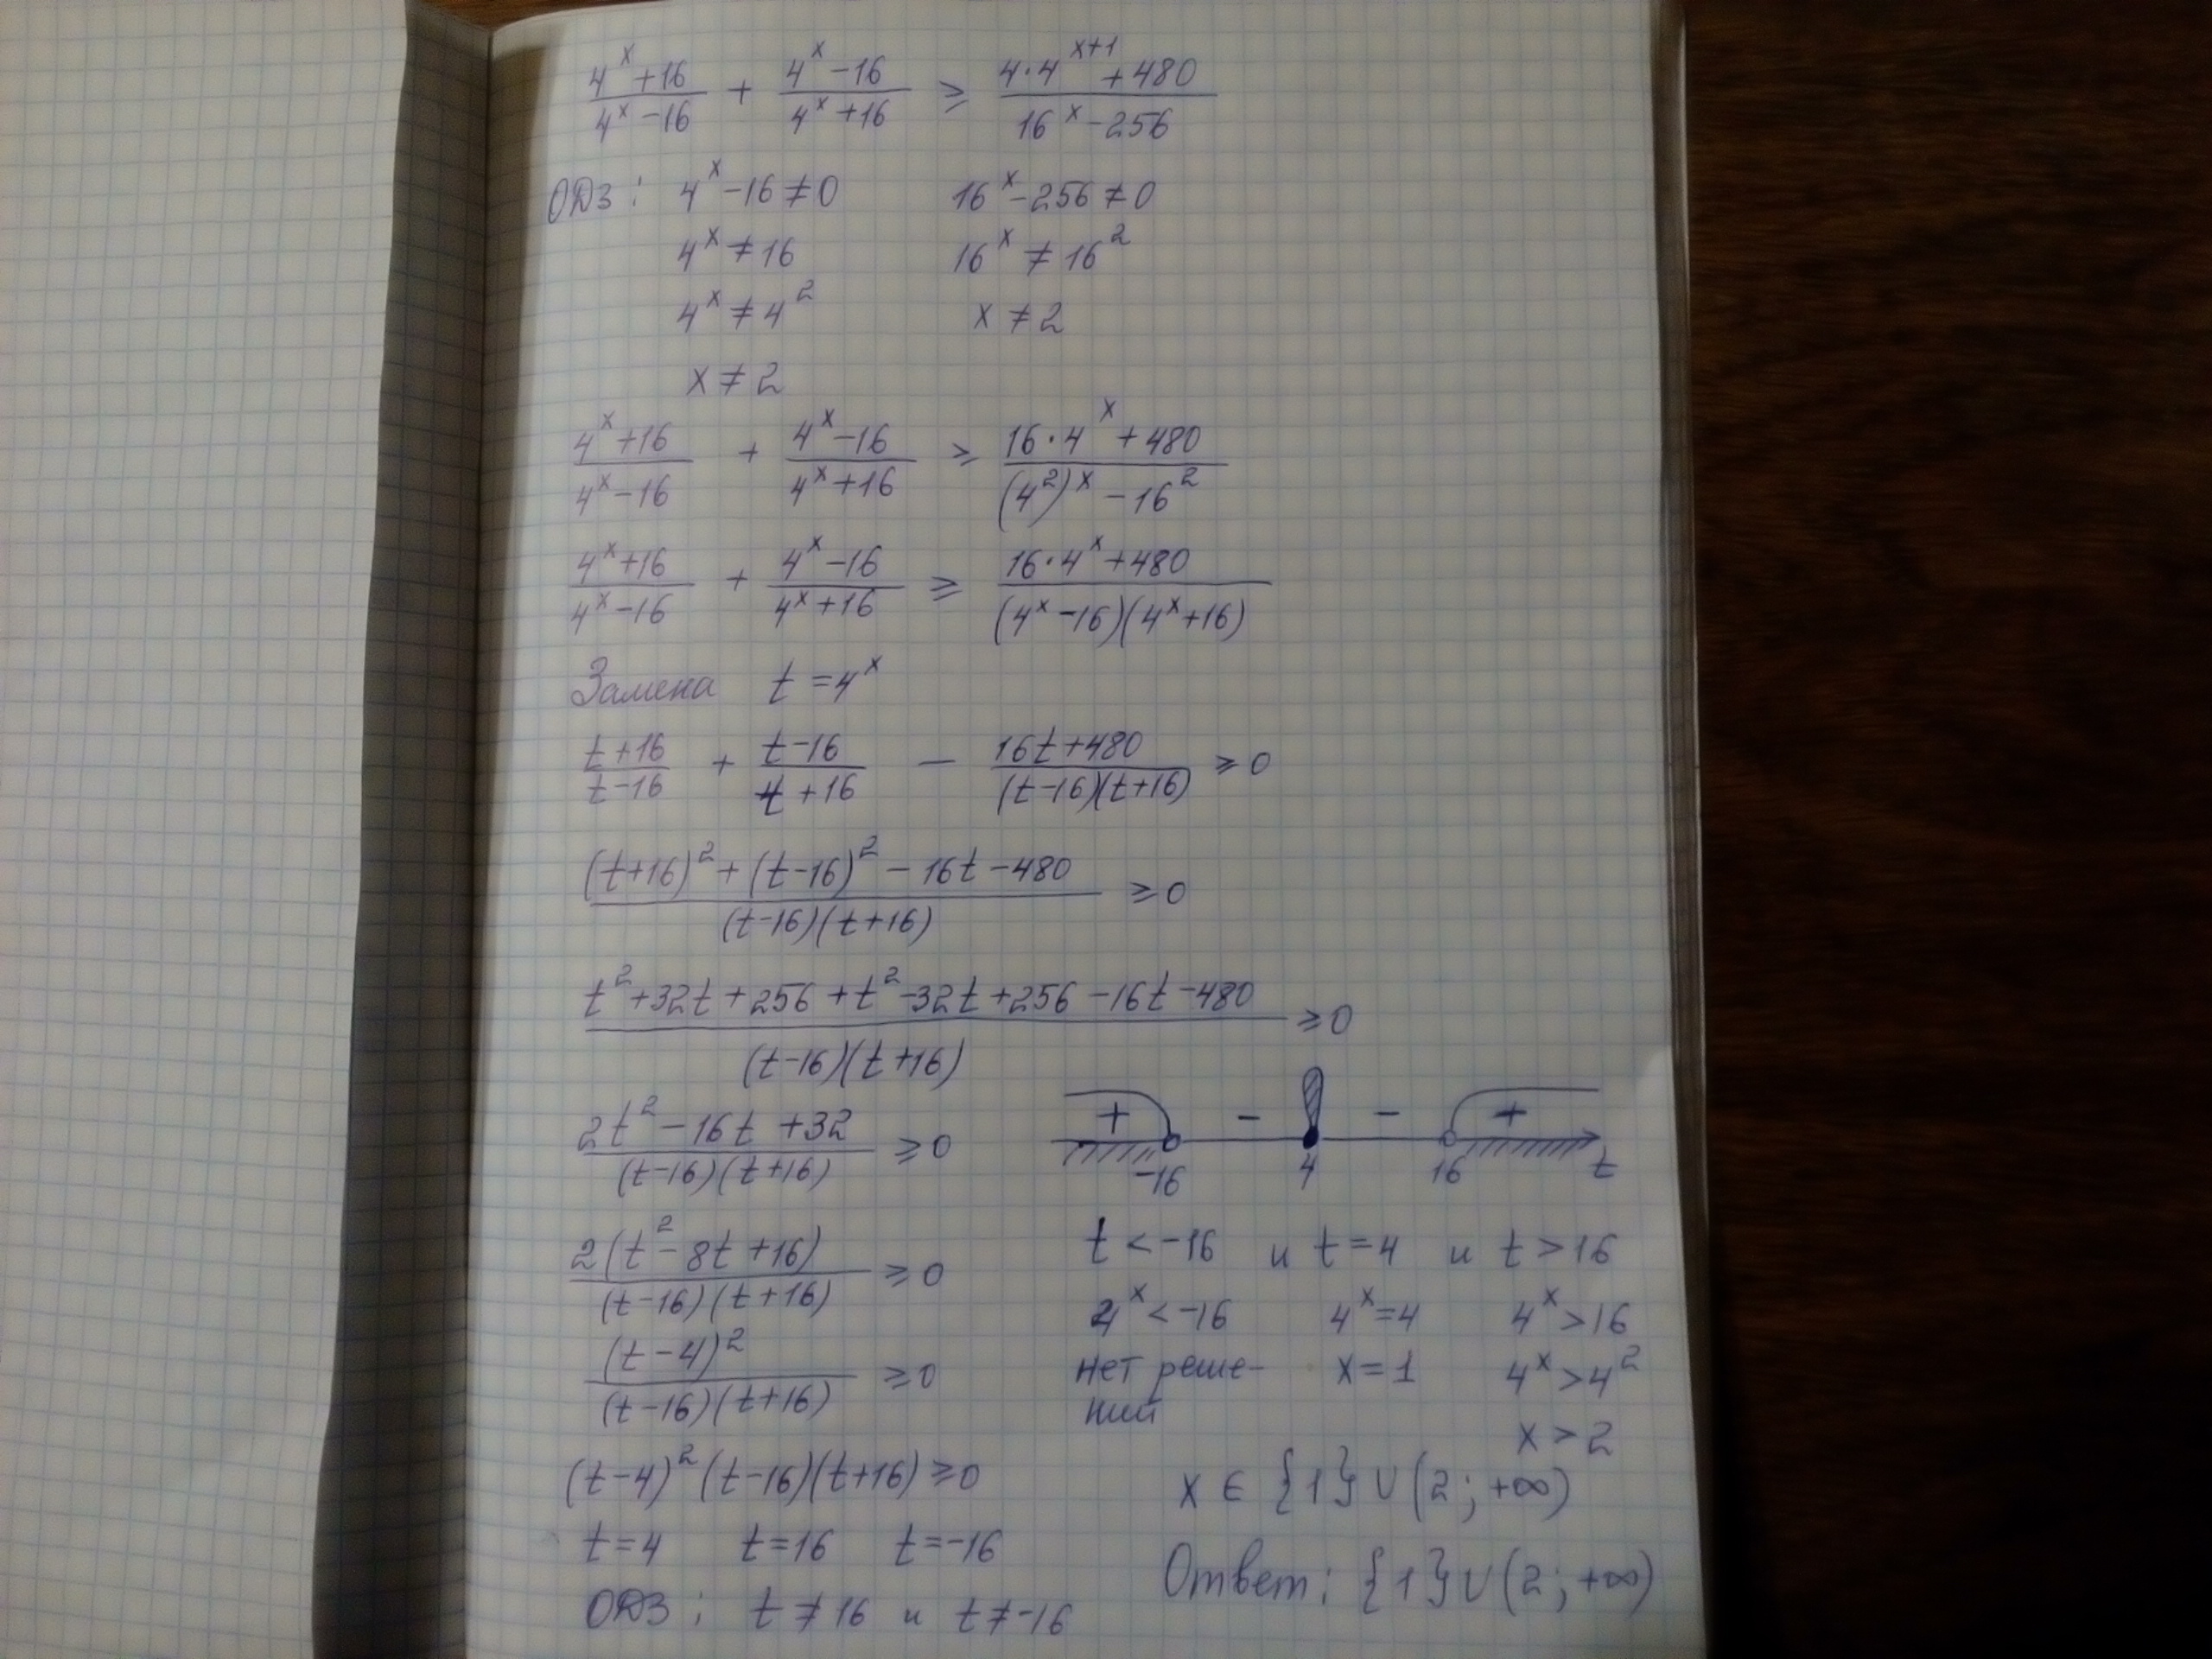 (4^x+16)/(4^x-16) + (4^x-16)/(4^x+16) ≥ (4·4^(x+1)+480)/(16^x-256)
ОДЗ: 4^x-16≠0 16^x-256≠0
4^x≠16 16^x≠16^2
4^x≠4^2 x≠2
x≠2
(4^x+16)/(4^x-16) + (4^x-16)/(4^x+16) ≥ (16·4^x+480)/((4^2)^x-16^2)
(4^x+16)/(4^x-16) + (4^x-16)/(4^x+16) ≥ (16·4^x+480)/((4^x-16)(4^x+16))
Замена t=4^x
(t+16)/(t-16) + (t-16)/(t+16) - (16t+480)/((t-16)(t+16)) ≥0
((t+16)^2+(t-16)^2-16t-480)/((t-16)(t+16)) ≥0
(t^2+32t+256+t^2-32t+256-16t-480)/((t-16)(t+16)) ≥0
(2t^2-16t+32)/((t-16)(t+16)) ≥0
(2(t^2-8t+16))/((t-16)(t+16)) ≥0
(t-4)^2/((t-16)(t+16)) ≥0
(t-4)^2(t-16)(t+16)≥0
t=4 t=16 t=-16
ОДЗ: t≠16 и t≠-16
+ - - +
-16 4 16 t
t<-16 и t=4 и t>16
4^x<-16 4^x=4 4^x>16
нет реше- x=1 4^x>4^2
ний
x>2
x∈{1}∪(2;+∞)
Ответ: {1}∪(2;+∞)